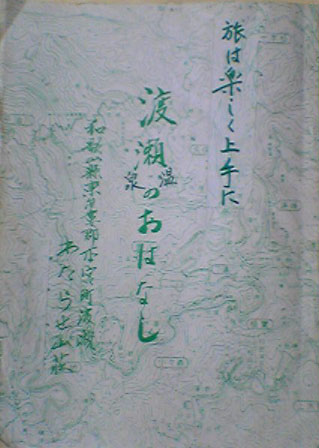 旅は楽しく上手に
渡瀬温泉のおはなし
和歌山県東牟婁郡本宮町渡瀬
わたらせ山荘